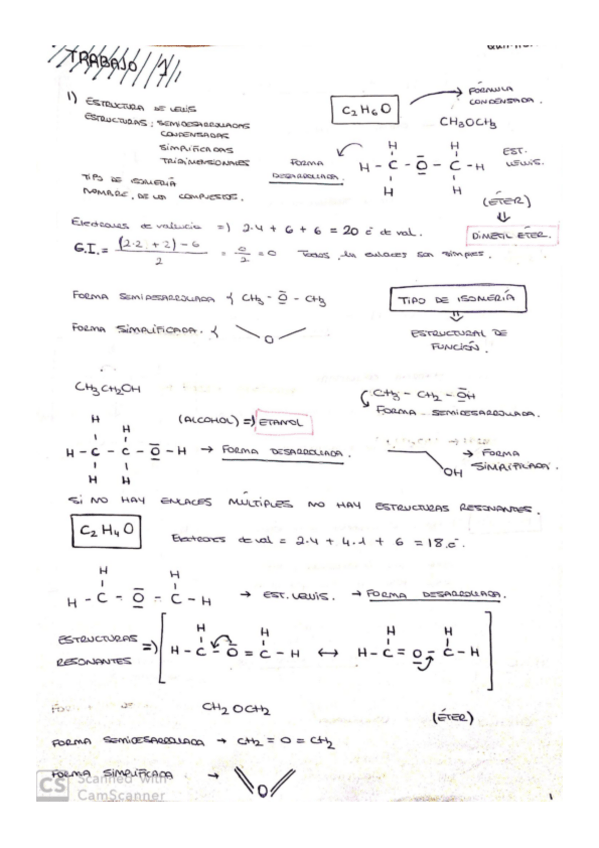 TRABAJO 1
1) ESTRUCTURA DE LEWIS
ESTRUCTURAS: SEMIDESARROLLADAS
CONDENSADAS
SIMPLIFICADAS
TRIDIMENSIONALES
TIPO DE ISOMERÍA
NOMBRE, DE LOS COMPUESTOS.
C2H6O
FÓRMULA CONDENSADA.
CH3OCH3
FORMA DESARROLLADA.
H H
H - C - O - C - H
H H
EST. LEWIS.
(ÉTER)
DIMETIL ÉTER.
Electrones de valencia =) 2·4 + 6 + 6 = 20 e- de val.
G.I. = (2·2 + 2) - 6 / 2 = 0/2 = 0 Todos los enlaces son simples.
FORMA SEMIDESARROLLADA { CH3 - O - CH3
FORMA SIMPLIFICADA. { O
TIPO DE ISOMERÍA
ESTRUCTURAL DE FUNCIÓN.
CH3CH2OH
(ALCOHOL) =) ETANOL
CH3 - CH2 - OH
FORMA - SEMIDESARROLLADA.
H H
H - C - C - O - H → FORMA DESARROLLADA.
H H
OH
→ FORMA SIMPLIFICADA.
SI NO HAY ENLACES MÚLTIPLES NO HAY ESTRUCTURAS RESONANTES.
C2H4O
Electrones de val = 2·4 + 4·1 + 6 = 18 e-.
H H
H - C - O - C - H → EST. LEWIS. → FORMA DESARROLLADA.
ESTRUCTURAS RESONANTES =)
H H H H
[H - C - O = C - H ↔ H - C = O - C - H]
CH2OCH2
(ÉTER)
FORMA SEMIDESARROLLADA → CH2 = O = CH2
FORMA SIMPLIFICADA → O
CS Scanned with
CamScanner
1